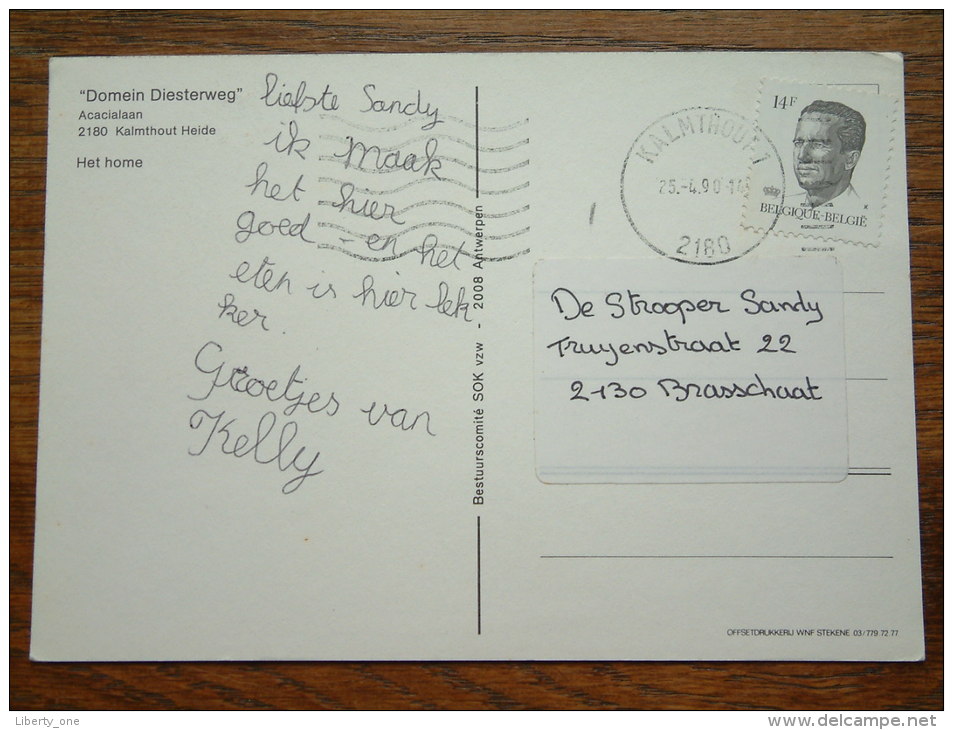 "Domein Diesterweg"
Acacialaan
2180 Kalmthout Heide
Het home
liefste Sandy
ik maak
het hier
goed - en het
eten is hier lek
ker.
Groetjes van
Kelly
Bestuurscomité SOK vzw - 2008 Antwerpen
KALMTHOUT 1
25.-4.90
2180
14F
BELGIQUE-BELGIË
De Strooper Sandy
Truyenstraat 22
2130 Brasschaat
OFFSETDRUKKERIJ WNF STEKENE 03/779.72.77
Liberty_one
www.delcampe.net